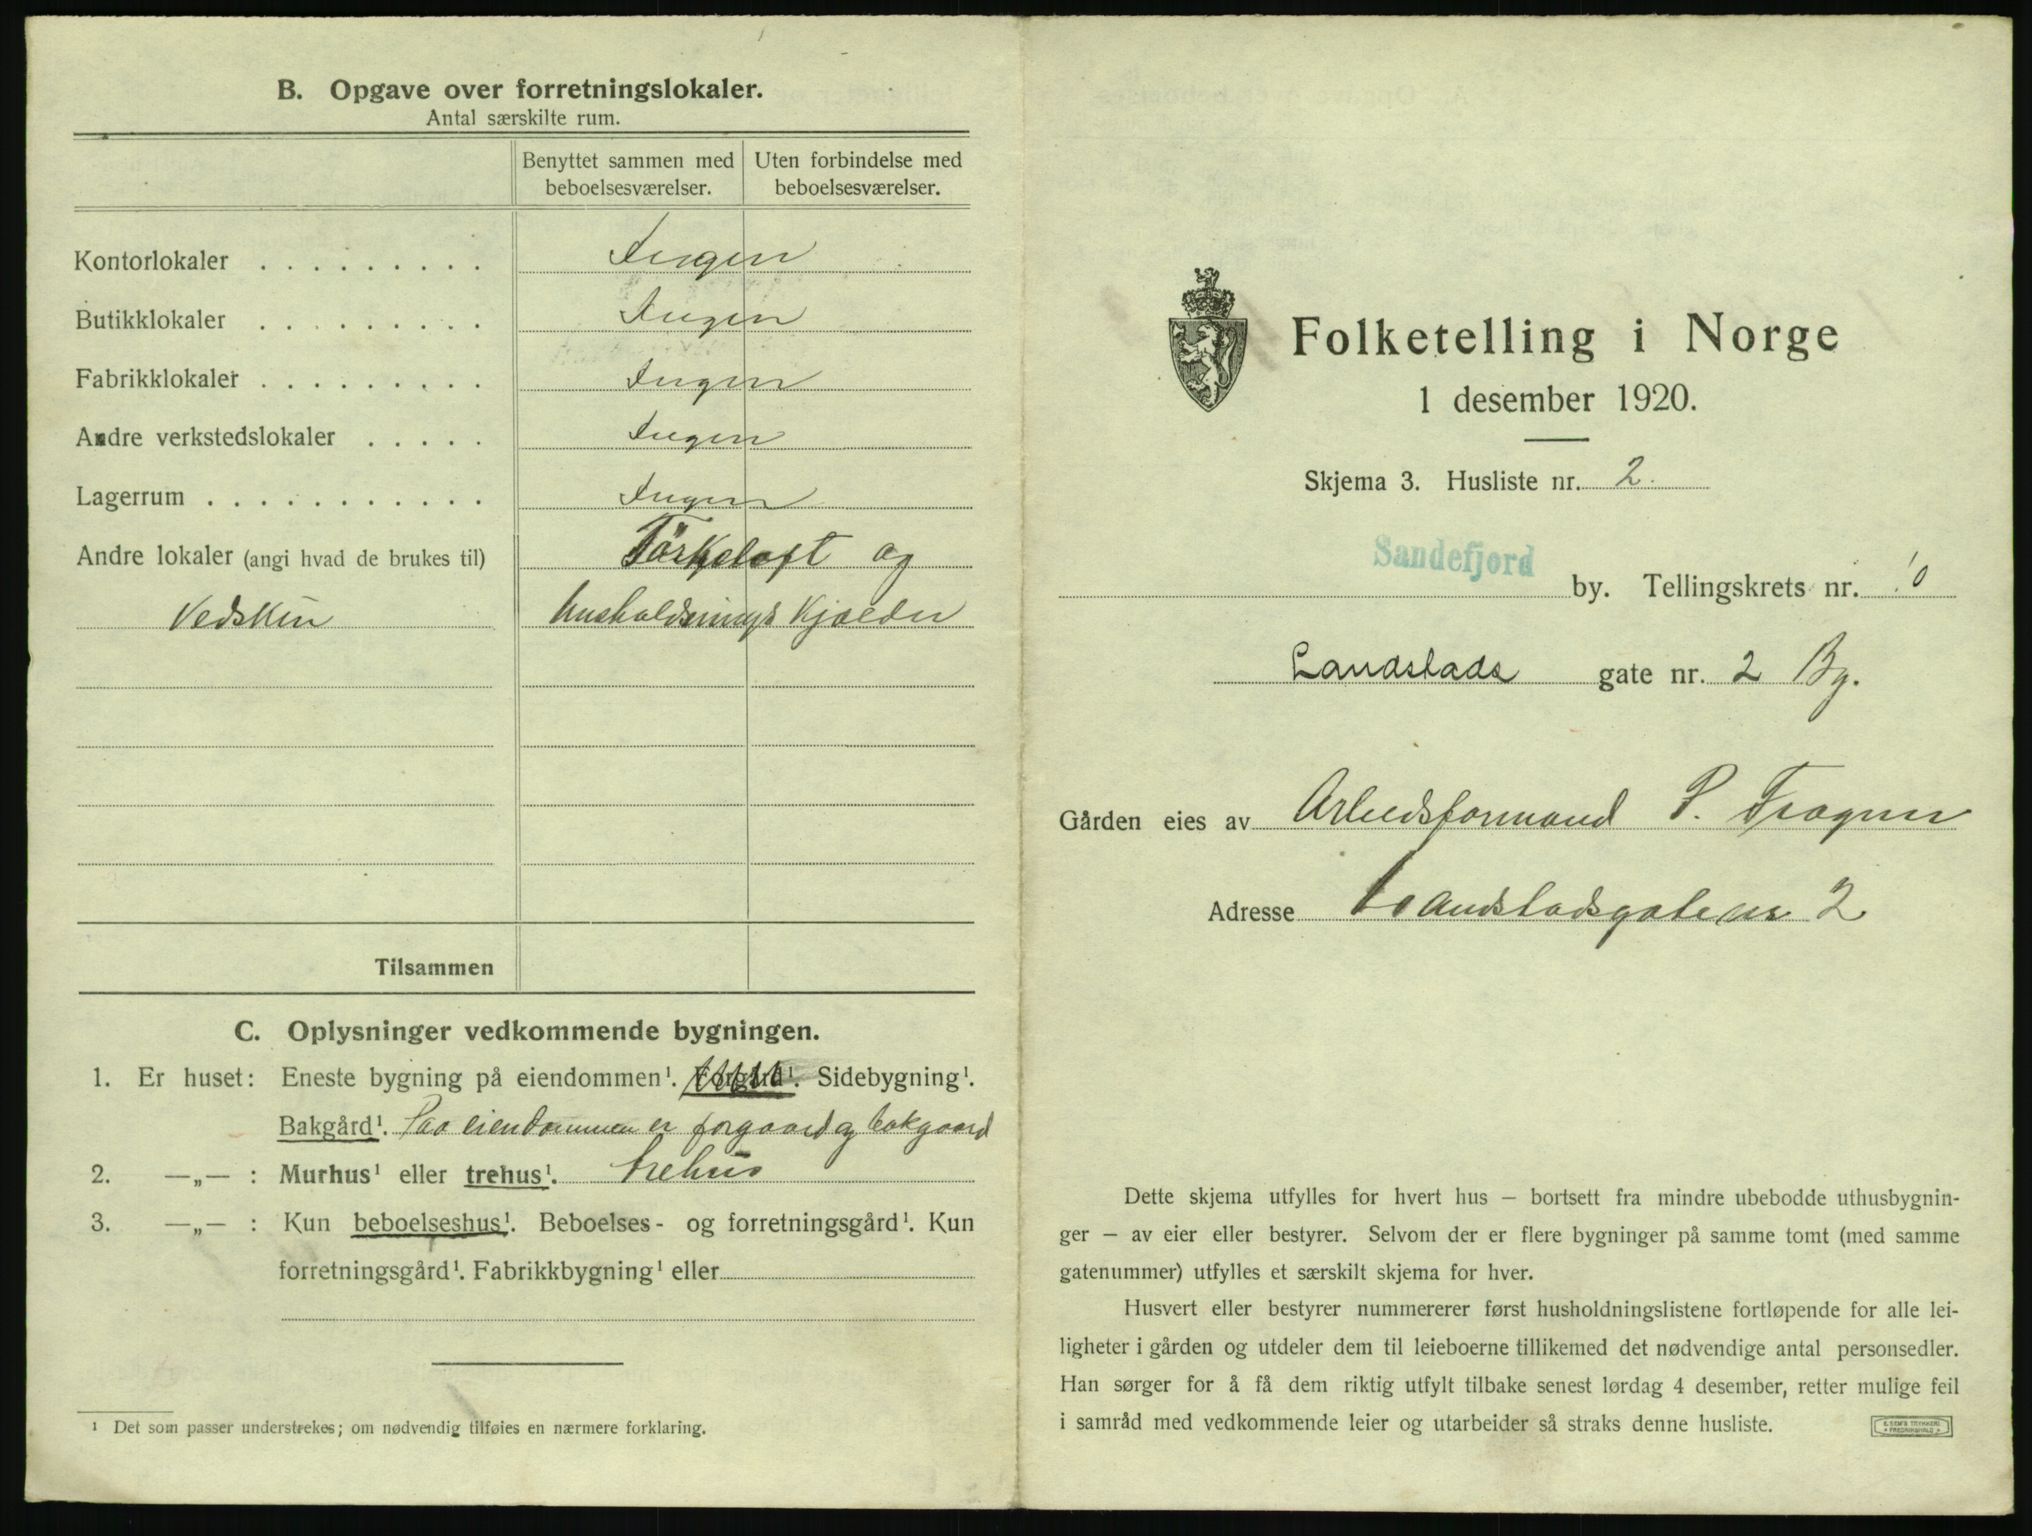 B. Opgave over forretningslokaler.
Antal særskilte rum.
Benyttet sammen med beboelsesværelser.
Uten forbindelse med beboelsesværelser.
Kontorlokaler . . . . . . . . . Ingen
Butikklokaler . . . . . . . . . Ingen
Fabrikklokaler . . . . . . . . . Ingen
Andre verkstedslokaler . . . . . Ingen
Lagerrum . . . . . . . . . . . Ingen
Andre lokaler (angi hvad de brukes til) Törkeloft og
Vedskur husholdnings kjælder
Tilsammen
C. Oplysninger vedkommende bygningen.
1. Er huset: Eneste bygning på eiendommen¹. Forgård¹. Sidebygning¹.
Bakgård¹. Paa eiendommen er forgaard og bakgaard
2. —„— : Murhus¹ eller trehus¹. trehus
3. —„— : Kun beboelseshus¹. Beboelses- og forretningsgård¹. Kun
forretningsgård¹. Fabrikkbygning¹ eller
¹ Det som passer understrekes; om nødvendig tilføies en nærmere forklaring.
Folketelling i Norge
1 desember 1920.
Skjema 3. Husliste nr. 2.
Sandefjord by. Tellingskrets nr. 10
Landstads gate nr. 2 By.
Gården eies av Arbeidsformand P. Trogner
Adresse Landstadsgate nr 2
Dette skjema utfylles for hvert hus – bortsett fra mindre ubebodde uthusbygnin-
ger – av eier eller bestyrer. Selvom der er flere bygninger på samme tomt (med samme
gatenummer) utfylles et særskilt skjema for hver.
Husvert eller bestyrer nummererer først husholdningslistene fortløpende for alle lei-
ligheter i gården og utdeler dem til leieboerne tillikemed det nødvendige antal personsedler.
Han sørger for å få dem riktig utfylt tilbake senest lørdag 4 desember, retter mulige feil
i samråd med vedkommende leier og utarbeider så straks denne husliste.
E. SEM'S TRYKKERI
FREDRIKSHALD